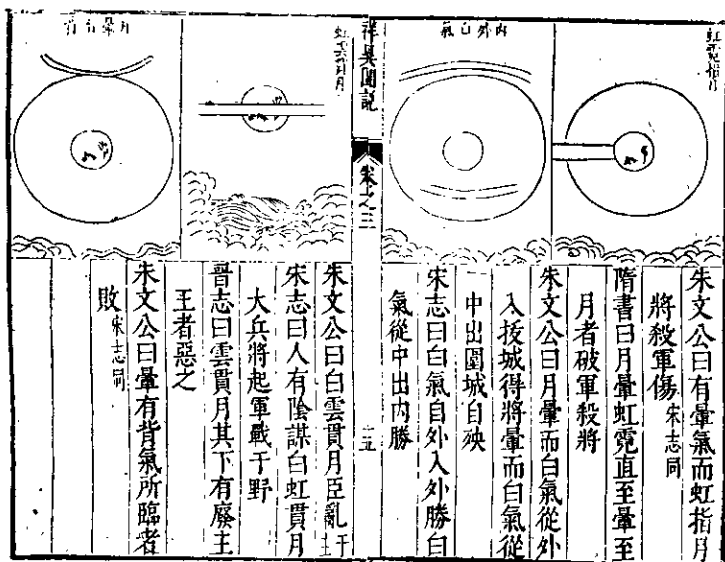 虹霓指月
內外白氣
朱文公曰有暈氣而虹指月
將殺軍傷宋志同
隋書曰月暈虹霓直至暈至
月者破軍殺將
朱文公曰月暈而白氣從外
入拔城得將暈而白氣從
中出圍城自殃
宋志曰白氣自外入外勝白
氣從中出內勝
祥異圖說
月暈有背
朱文公曰白雲貫月臣亂于主
宋志曰人有陰謀白虹貫月
大兵將起軍戰于野
晉志曰雲貫月其下有廢主
王者惡之
朱文公曰暈有背氣所臨者
敗宋志同